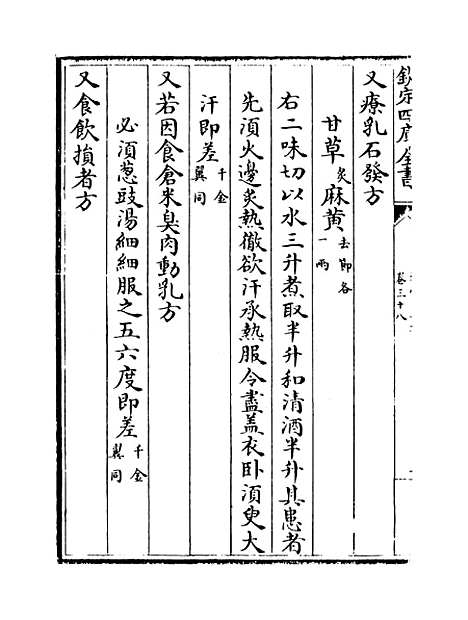 欽定四庫全書
卷三十八
又療乳石發方
甘草炙麻黄去節各一兩
右二味切以水三升煮取半升和清酒半升其患者
先須火邊炙熱徹欲汗承熱服令盡蓋衣卧須臾大
汗即差千金翼同
又若因食倉米臭肉動乳方
必須葱豉湯細細服之五六度即差千金翼同
又食飲損者方